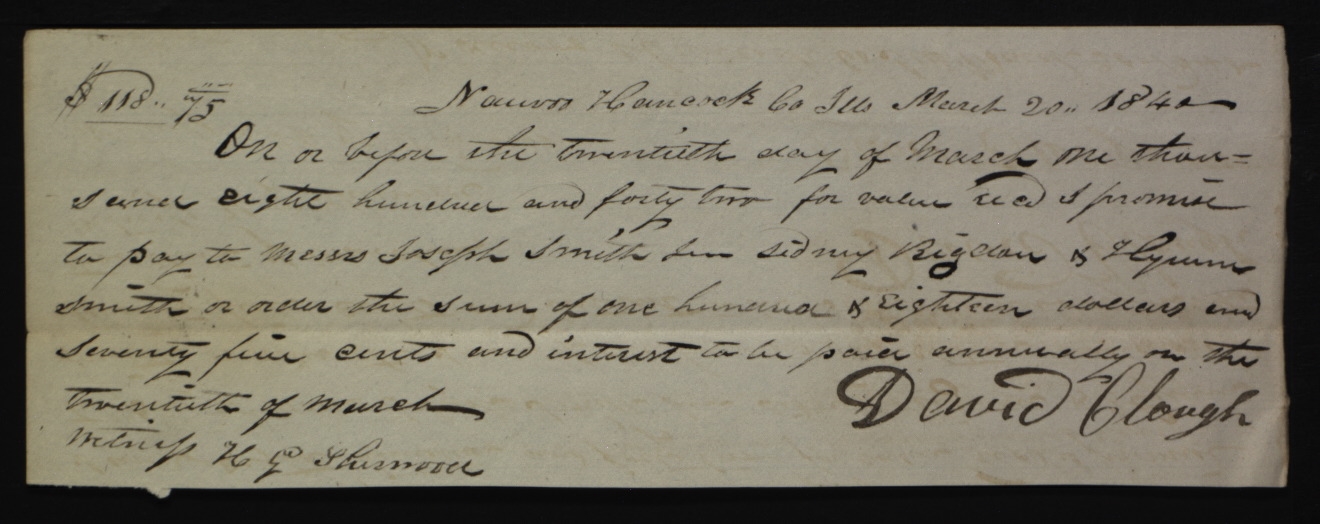 $118.. 75 Nauvoo Hancock Co Ills March 20.. 1840
On or before the twentieth day of March one thou=
sand eight hundred and forty two for value recd I promise
to pay to Messrs Joseph Smith Jun Sidney Rigdon & Hyrum
Smith or order the sum of one hundred & Eighteen dollars and
seventy five cents and interest to be paid annually on the
twentieth of March
David Clough
Witness H G Sherwood